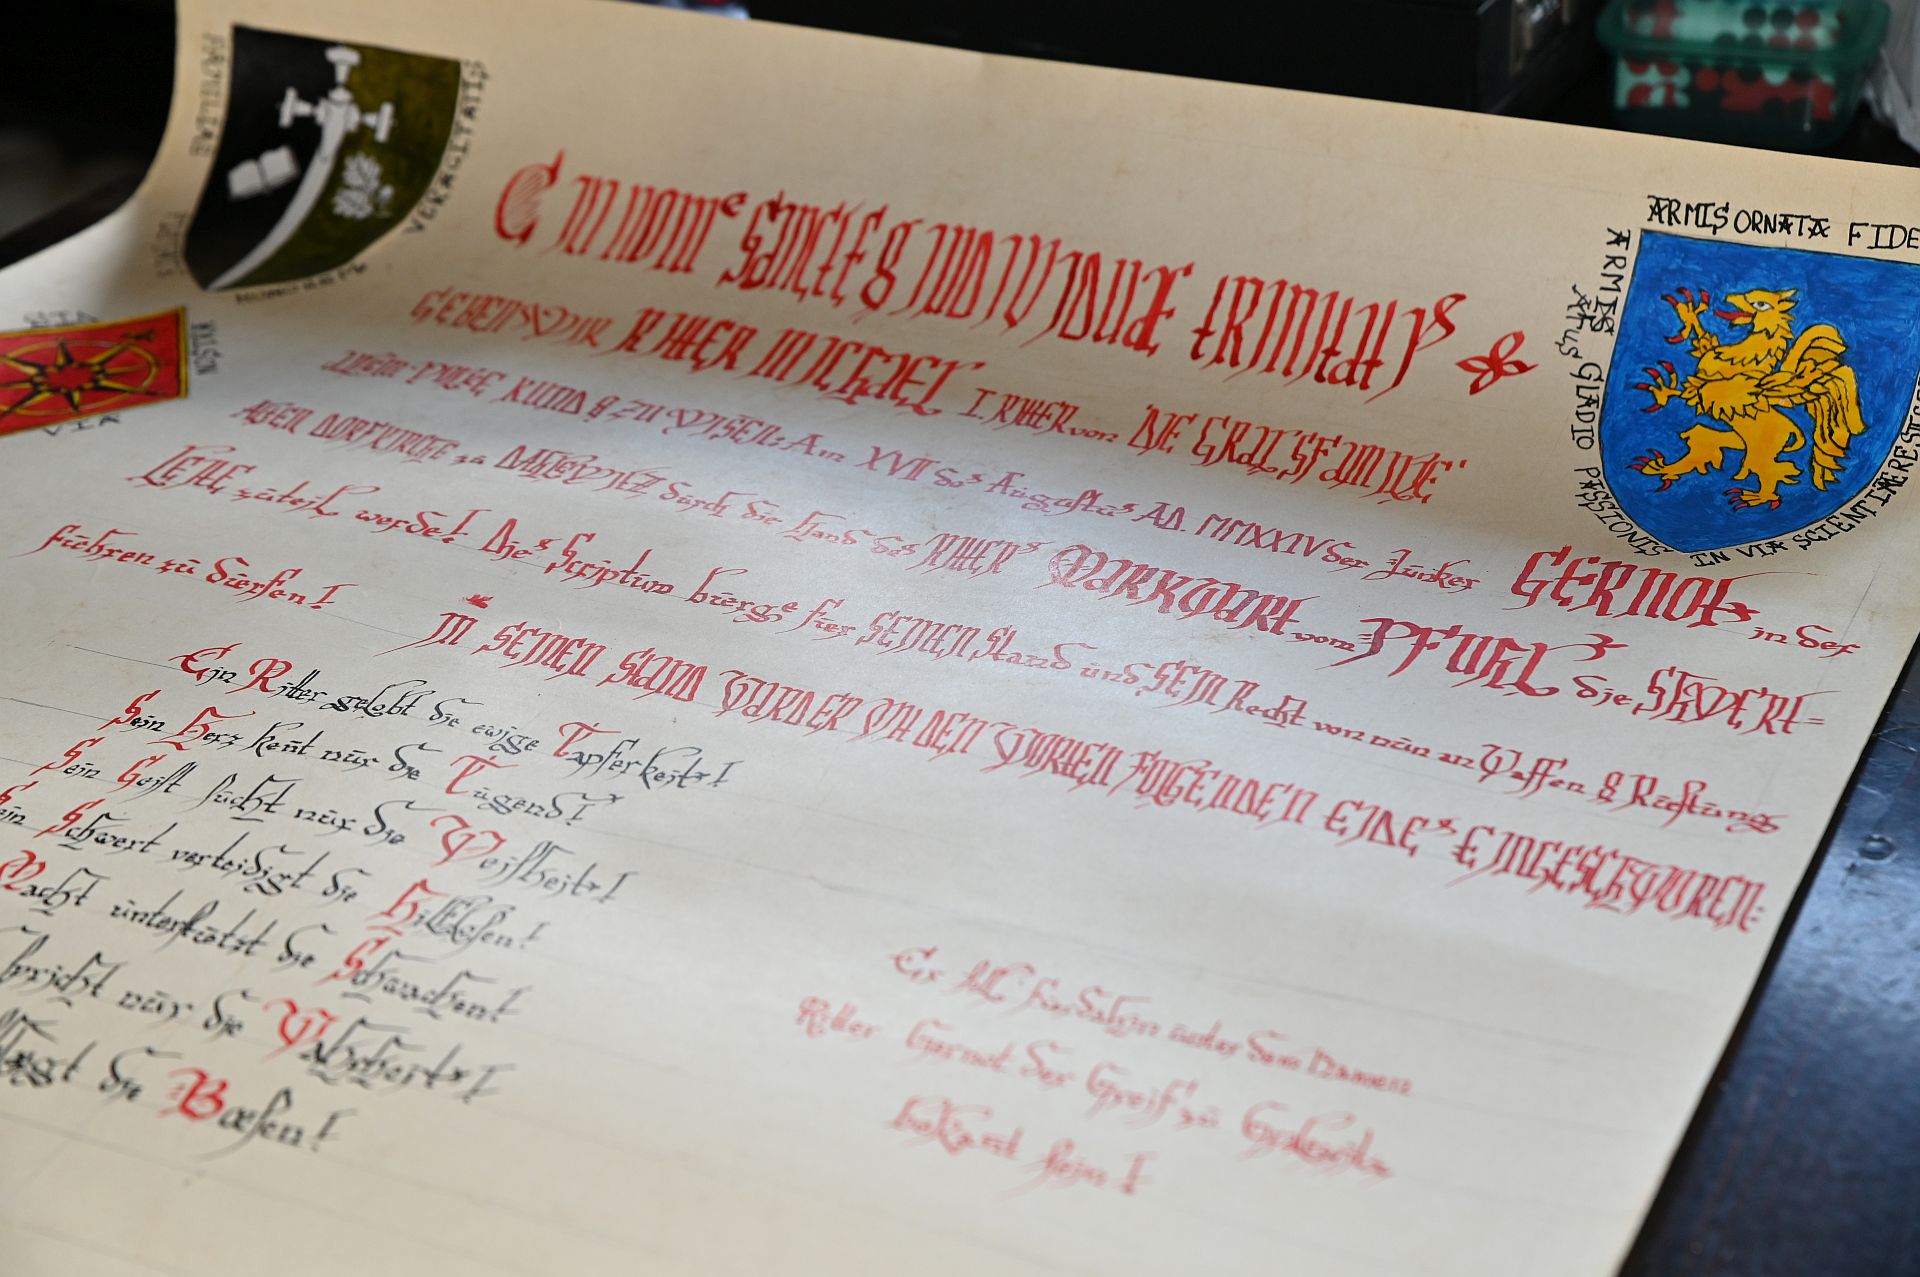 FAMILIAS
VERACITATIS
VIA
ARMIS ORNATA FIDE
ARMIS
GLADIO PASSIONIS
IN VIA SCIENTIÆ
C IN NOMe SANCTE & INDIVIDUÆ TRINITATIS
GEBEN WIR RITTER MICHAEL I. RITTER von DIE GRALSFAMILIE
KUND & ZU WISEN: Am XVII des Augustus AD. MMXXIV der Junker GERNOT in der
ALTEN DORFKIRCHE zu DAHLEWITZ durch die Hand des RITTERs MARKWART vom PFUHL die SCHWERT=
LEITE zuteil werde! Dies Scriptum buerge fuer SEINEN Stand und SEIN Recht von nun an Waffen & Rüstung
fuehren zu duerfen!
IN SEINEN STAND WURDE ER MIT DEN WORTEN FOLGENDEN EIDEs EINGESCHWOREN:
Ein Ritter gelobt die ewige Tapferkeit!
Sein Herz kent nur die Tugend!
Sein Geist sucht nur die Weisheit!
Sein Schwert verteidigt die Hilflosen!
Macht unterstützt die Schwachen!
spricht nur die Wahrheit!
die Bœsen!
Er soll fürdahin unter dem Namen
Ritter Gernot der Greif zu
bekant sein!